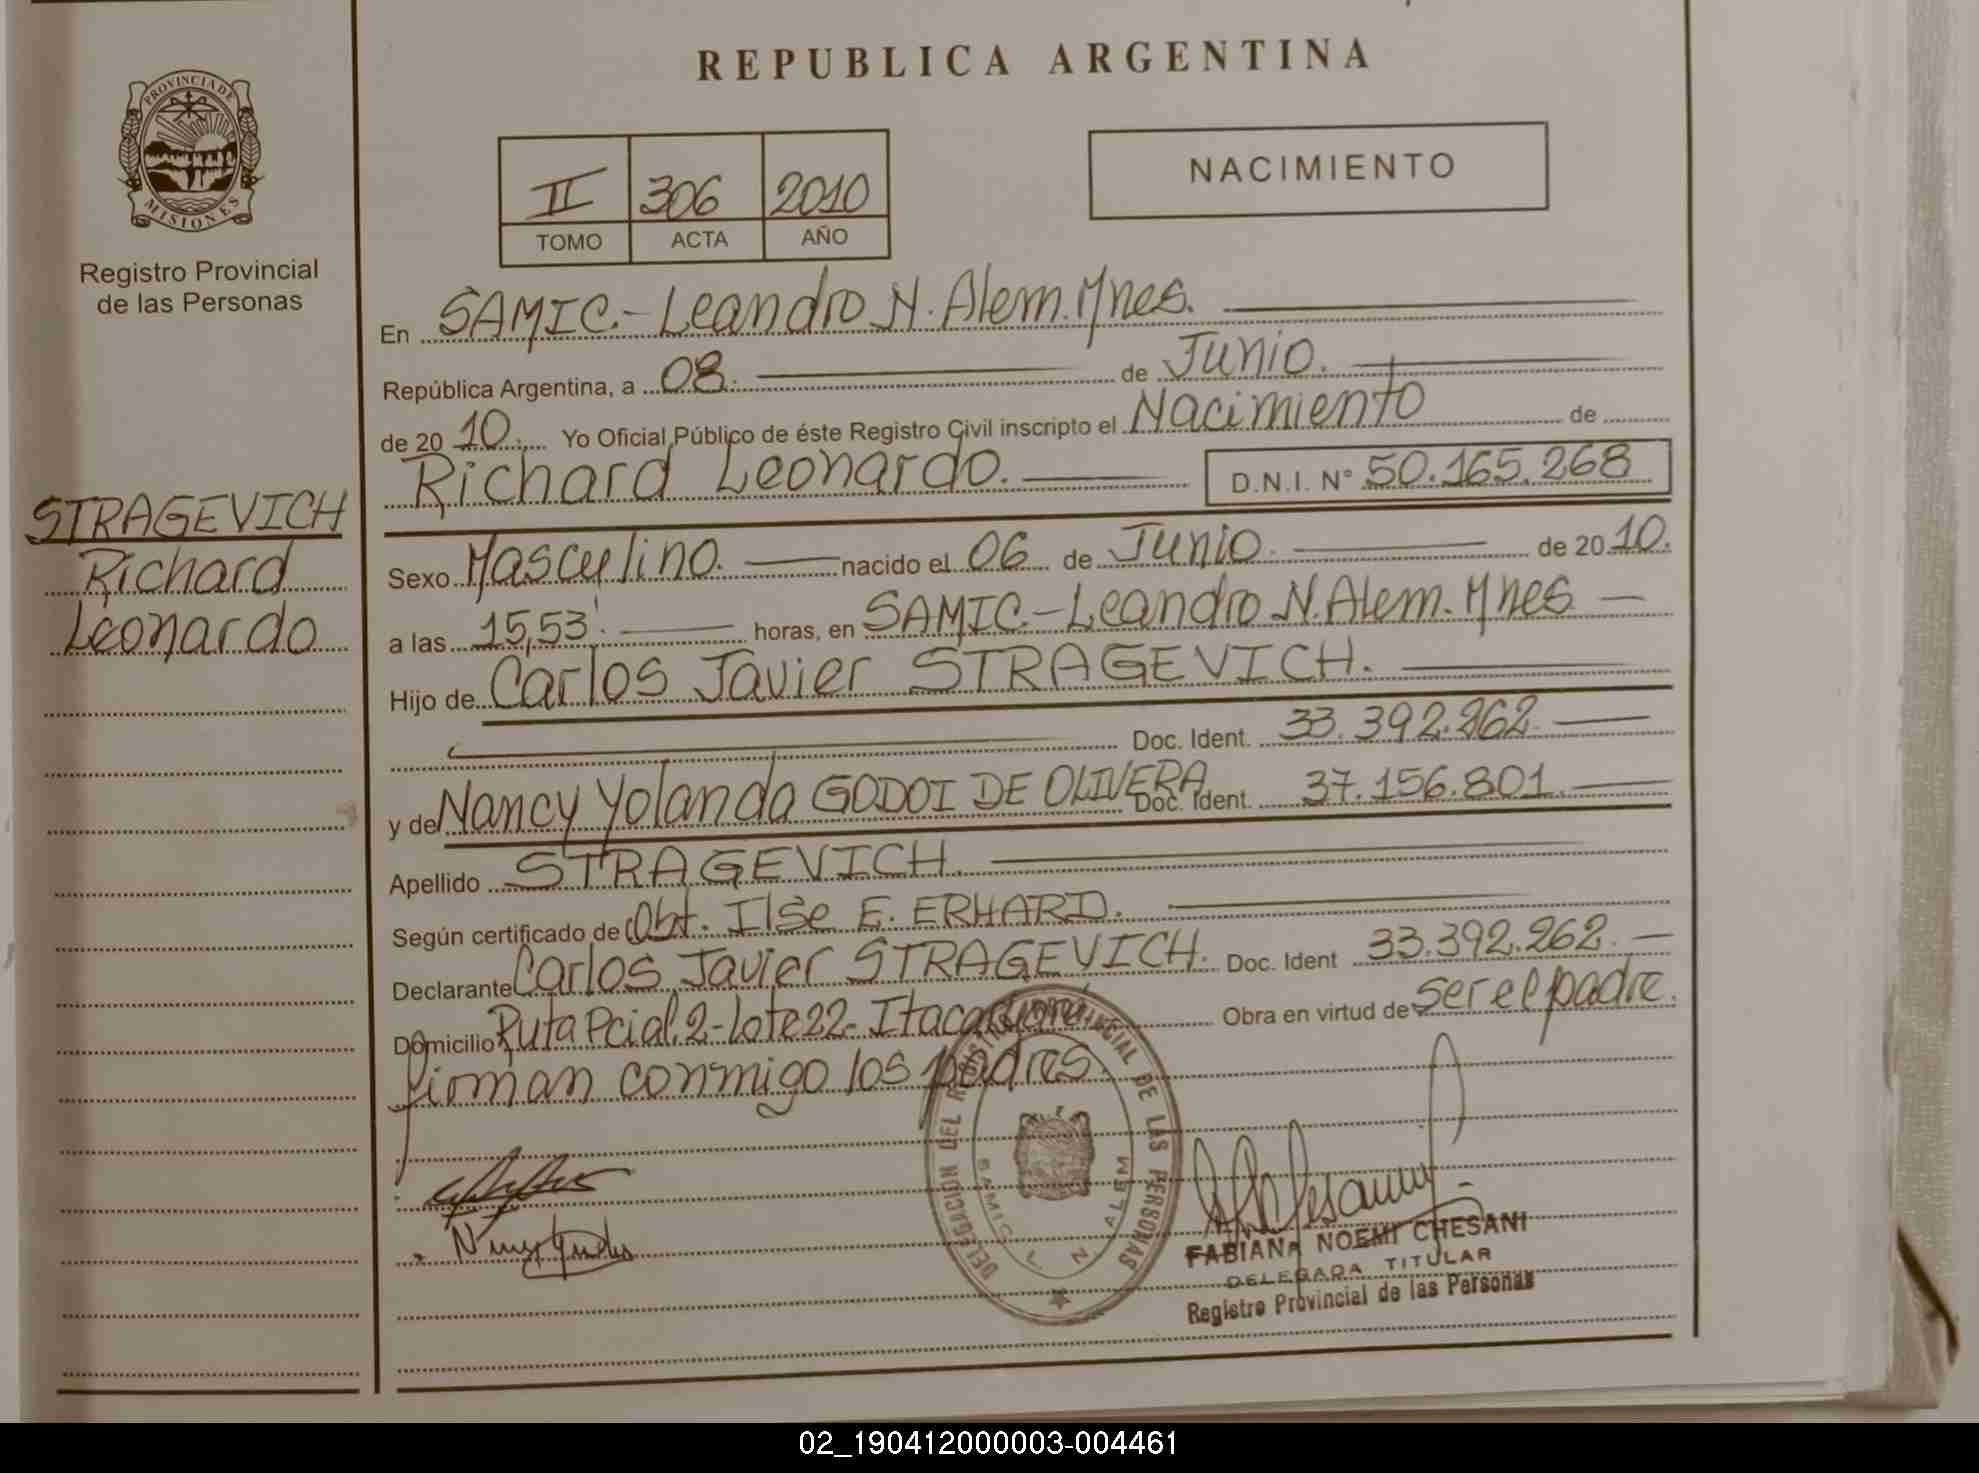 REPUBLICA ARGENTINA
PROVINCIA DE MISIONES
Registro Provincial
de las Personas
II 306 2010
TOMO ACTA AÑO
NACIMIENTO
En SAMIC.- Leandro N. Alem. Mnes.
República Argentina, a 08. de Junio.
de 20 10. Yo Oficial Público de éste Registro Civil inscripto el Nacimiento de
Richard Leonardo. D.N.I. N° 50.165.268
STRAGEVICH
Richard
Leonardo
Sexo Masculino. nacido el 06 de Junio. de 20 10.
a las 15,53' horas, en SAMIC.- Leandro N. Alem. Mnes
Hijo de Carlos Javier STRAGEVICH.
Doc. Ident. 33.392.262.
y de Nancy Yolanda GODOI DE OLIVERA Doc. Ident. 37.156.801.
Apellido STRAGEVICH.
Según certificado de Obt. Ilse E. ERHARD.
Declarante Carlos Javier STRAGEVICH. Doc. Ident 33.392.262.
Domicilio Ruta Pcial. 2-Lote 22- Itacaruaré Obra en virtud de ser el padre.
firman conmigo los padres.
DELEGACION DEL REGISTRO PROVINCIAL DE LAS PERSONAS
SAMIC L N ALEM
FABIANA NOEMI CHESANI
DELEGADA TITULAR
Registro Provincial de las Personas
02_190412000003-004461